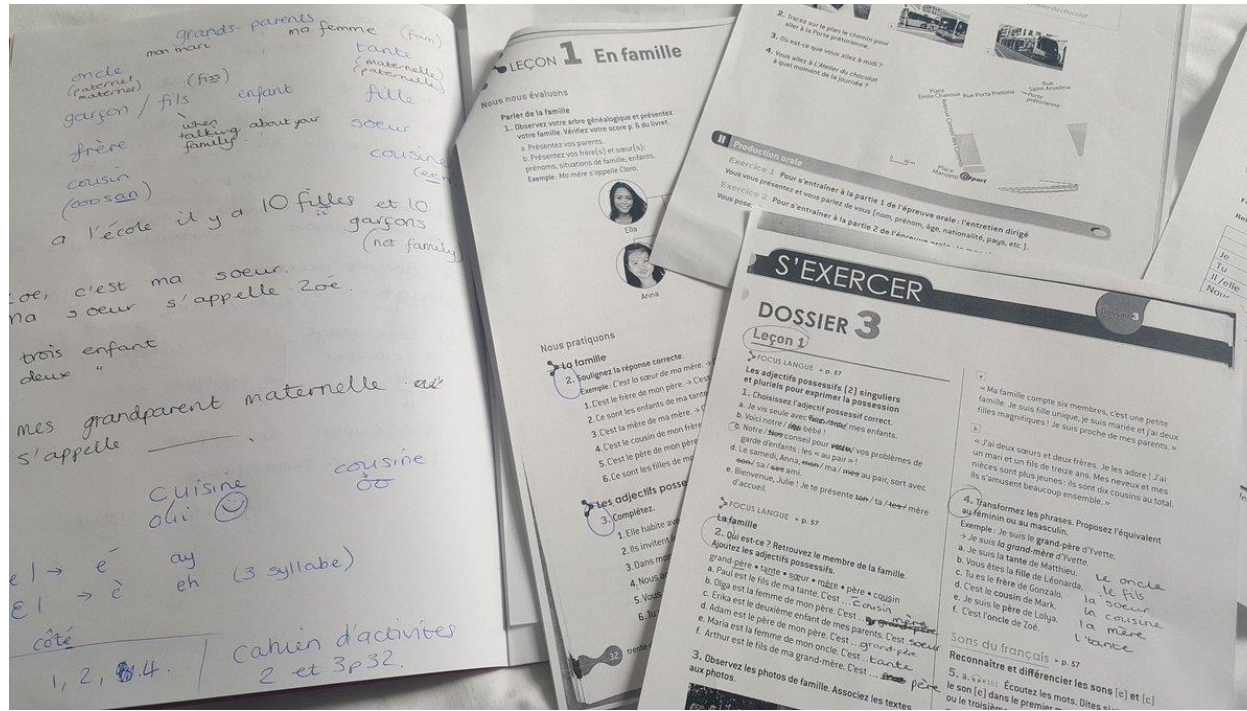 grands-parents
mon mari , ma femme (fam)
oncle tante
(paternel (maternelle)
maternel) (paternelle)
garçon / fils (fiss) enfant fille
when
talking about your
family
frère soeur
cousin cousine
(coosan) (een)
a l'école il y a 10 filles et 10
garçons
(not family)
Zoe, c'est ma soeur.
ma soeur s'appelle Zoé.
trois enfant
deux "
mes grandparent maternelle
s'appelle
cuisine cousine
oui
e | → é ay
ɛ | → è eh (3 syllabe)
côté
1, 2, 4
cahier d'activités
2 et 3 p32.
LEÇON 1 En famille
Nous nous évaluons
Parler de la famille
1. Observez votre arbre généalogique et présentez
votre famille. Vérifiez votre score p. 6 du livret.
a. Présentez vos parents.
b. Présentez vos frère(s) et sœur(s):
prénoms, situations de famille, enfants.
Exemple : Ma mère s'appelle Clara.
Ella
Anna
Nous pratiquons
La famille
2. Soulignez la réponse correcte.
Exemple : C'est la sœur de ma mère. →
1. C'est le frère de mon père. → C'est
2. Ce sont les enfants de ma tante
3. C'est la mère de ma mère. →
4. C'est le cousin de mon
5. C'est le père de mon père
6. Ce sont les filles de
Les adjectifs
3. Complétez.
1. Elle habite
2. Ils invitent
3. Dans
4. Nous
5. Vous
6. Tu
32
2. Tracez sur le plan le chemin pour
aller à la Porte prétorienne.
3. Où est-ce que vous allez à midi ?
4. Vous allez à L'Atelier du chocolat
à quel moment de la journée ?
Place
Émile Chanoux
Rue Porta Pretoria
Rue
Saint-Anselme
Porte
prétorienne
Place
Manzetti
Départ
II Production orale
Exercice 1 Pour s'entraîner à la partie 1 de l'épreuve orale : l'entretien dirigé
Vous vous présentez et vous parlez de vous (nom, prénom, âge, nationalité, pays, etc.).
Exercice 2 Pour s'entraîner à la partie 2 de l'épreuve orale
Vous
Je
Tu
Il/elle
Nous
S'EXERCER
Dossier 3
DOSSIER 3
Leçon 1
FOCUS LANGUE → p. 57
Les adjectifs possessifs [2] singuliers
et pluriels pour exprimer la possession
1. Choisissez l'adjectif possessif correct.
a. Je vis seule avec mes enfants.
b. Voici notre / bébé !
c. Notre / Nos conseil pour vos problèmes de
garde d'enfants : les « au pair » !
d. Le samedi, Anna, mon / ma / mes au pair, sort avec
son / sa / ses ami.
e. Bienvenue, Julie ! Je te présente ton / ta / tes / mère
d'accueil.
FOCUS LANGUE → p. 57
La famille
2. Qui est-ce ? Retrouvez le membre de la famille.
Ajoutez les adjectifs possessifs.
grand-père • tante • sœur • mère • père • cousin
a. Paul est le fils de ma tante. C'est ... cousin
b. Olga est la femme de mon père. C'est ... mère
c. Erika est le deuxième enfant de mes parents. C'est soeur
d. Adam est le père de mon père. C'est ... grand-père
e. Maria est la femme de mon oncle. C'est ... tante
f. Arthur est le fils de ma grand-mère. C'est ... père
3. Observez les photos de famille. Associez les textes
aux photos.
a
« Ma famille compte six membres, c'est une petite
famille. Je suis fille unique, je suis mariée et j'ai deux
filles magnifiques ! Je suis proche de mes parents. »
b
« J'ai deux sœurs et deux frères. Je les adore ! J'ai
un mari et un fils de treize ans. Mes neveux et mes
nièces sont plus jeunes : ils sont dix cousins au total.
Ils s'amusent beaucoup ensemble. »
4. Transformez les phrases. Proposez l'équivalent
au féminin ou au masculin.
Exemple : Je suis le grand-père d'Yvette.
→ Je suis la grand-mère d'Yvette.
a. Je suis la tante de Matthieu. le oncle
b. Vous êtes la fille de Léonarda. le fils
c. Tu es le frère de Gonzalo. la soeur
d. C'est le cousin de Mark. la cousine
e. Je suis le père de Lolya. la mère
f. C'est l'oncle de Zoé. l'tante
Sons du français → p. 57
Reconnaître et différencier les sons [e] et [ɛ]
5. a. Écoutez les mots. Dites si
le son [e] dans le premier
ou le troisième